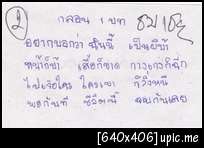 2
กลอน 1 บท
อยากบอกว่า ฉันนี้ เป็นผีบ้า
หน้าก็บ้า เสื้อก็ขาด กางเกงก็ฉีก
ไปเจอใคร ใครเขา ก็วิ่งหนี
พอกันที ชีวิตนี้ จบกันเลย
[640x406] upic.me